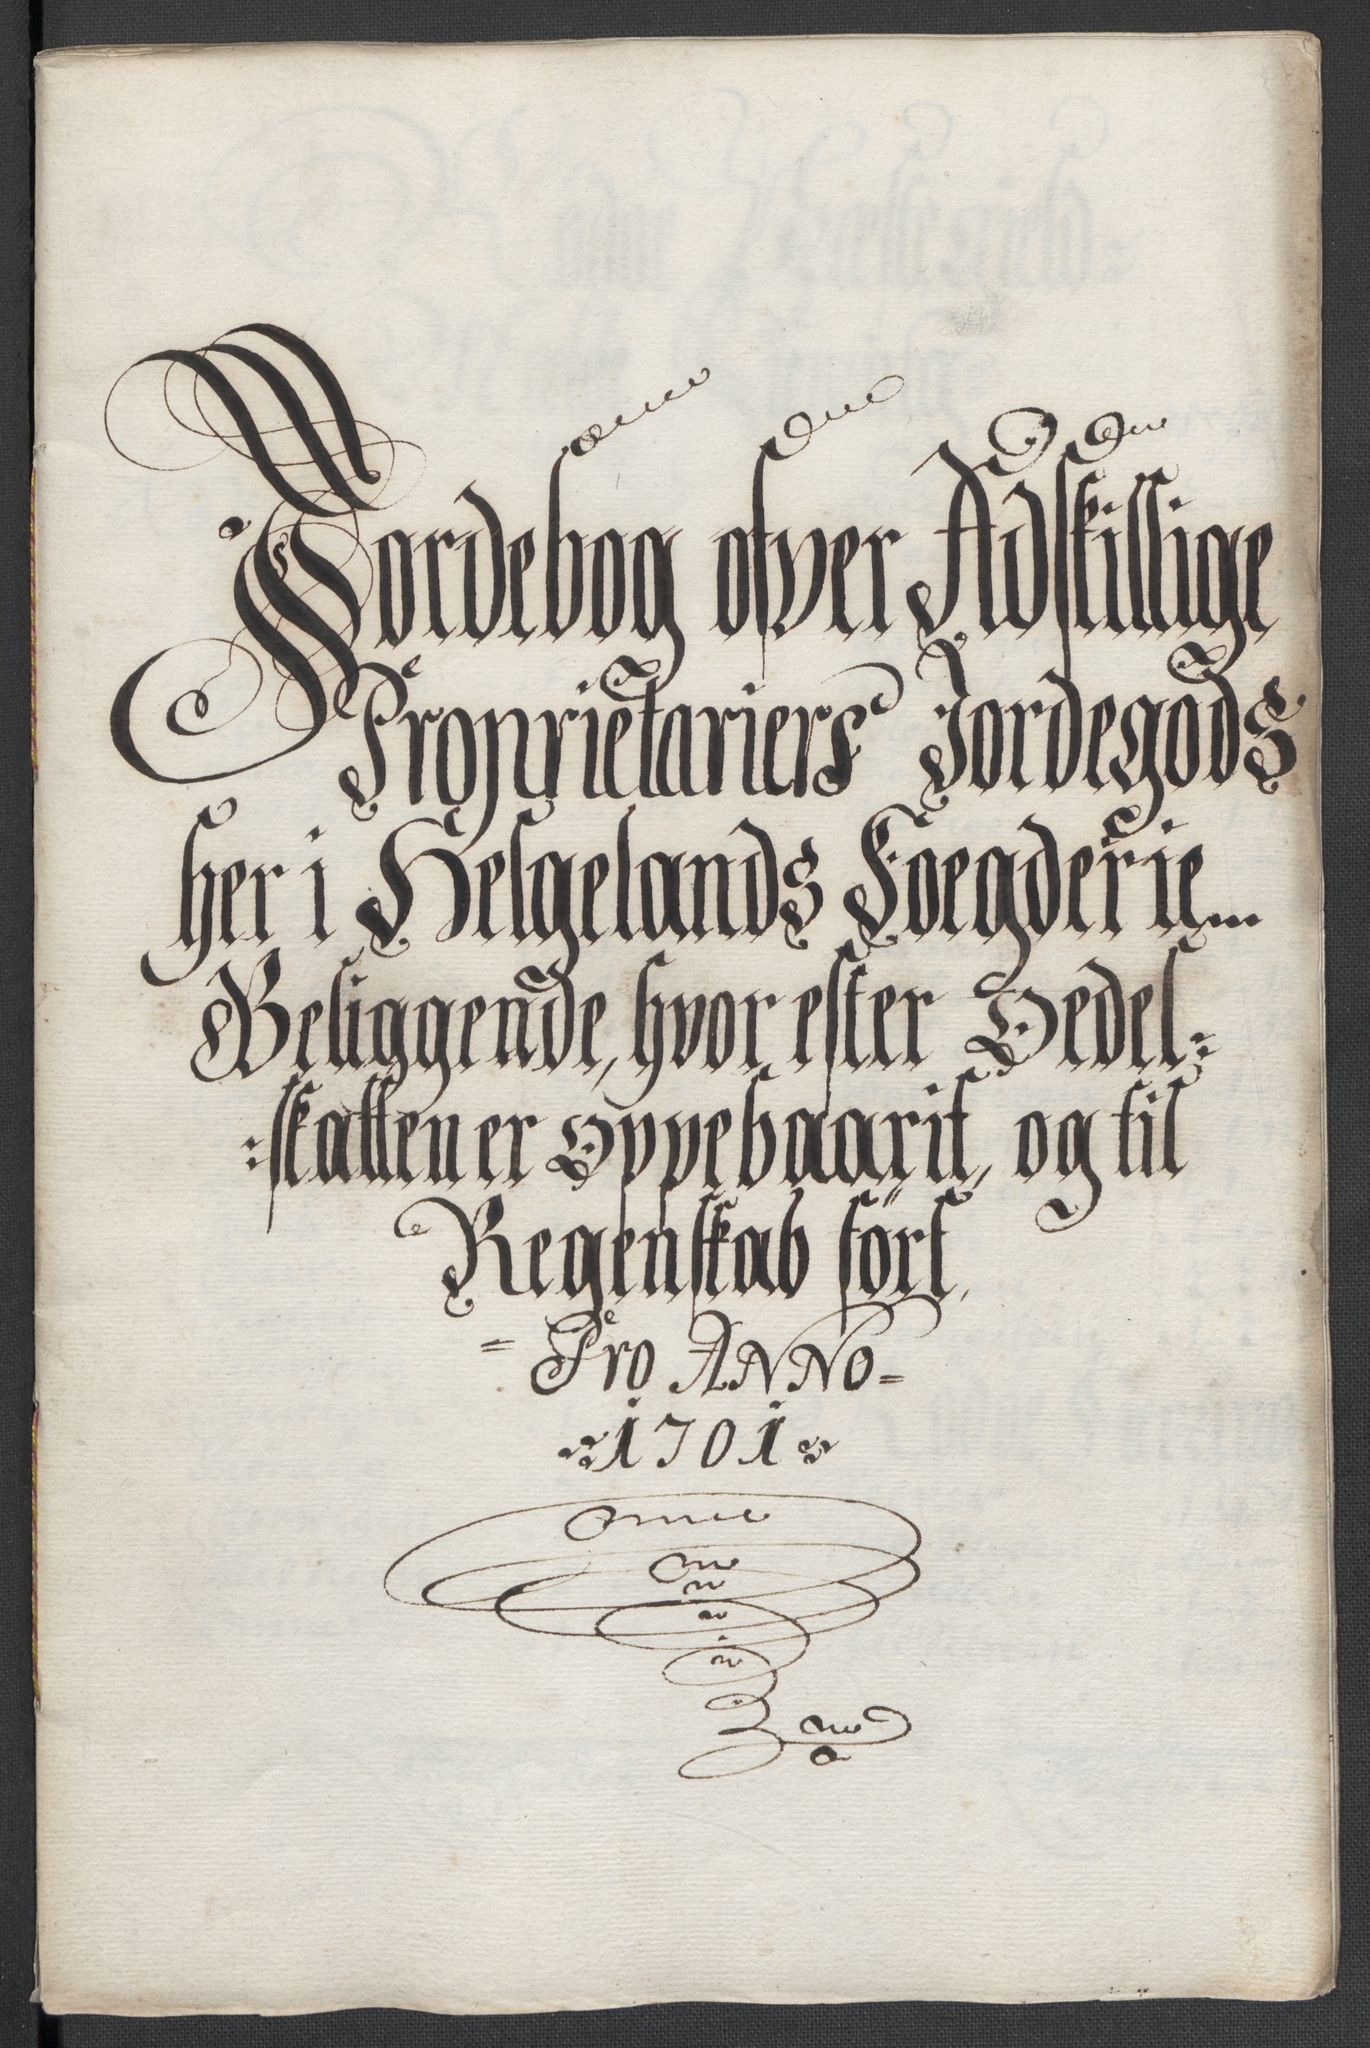 Jordebog ofver Adskillige
Proprietariers Jordegods
her i Helgelands Foegderie
Beliggende, hvor efter Oedel=
=skatten er Oppebaarit, og til
Regenskab fört,
= Pro ANNO =
1701